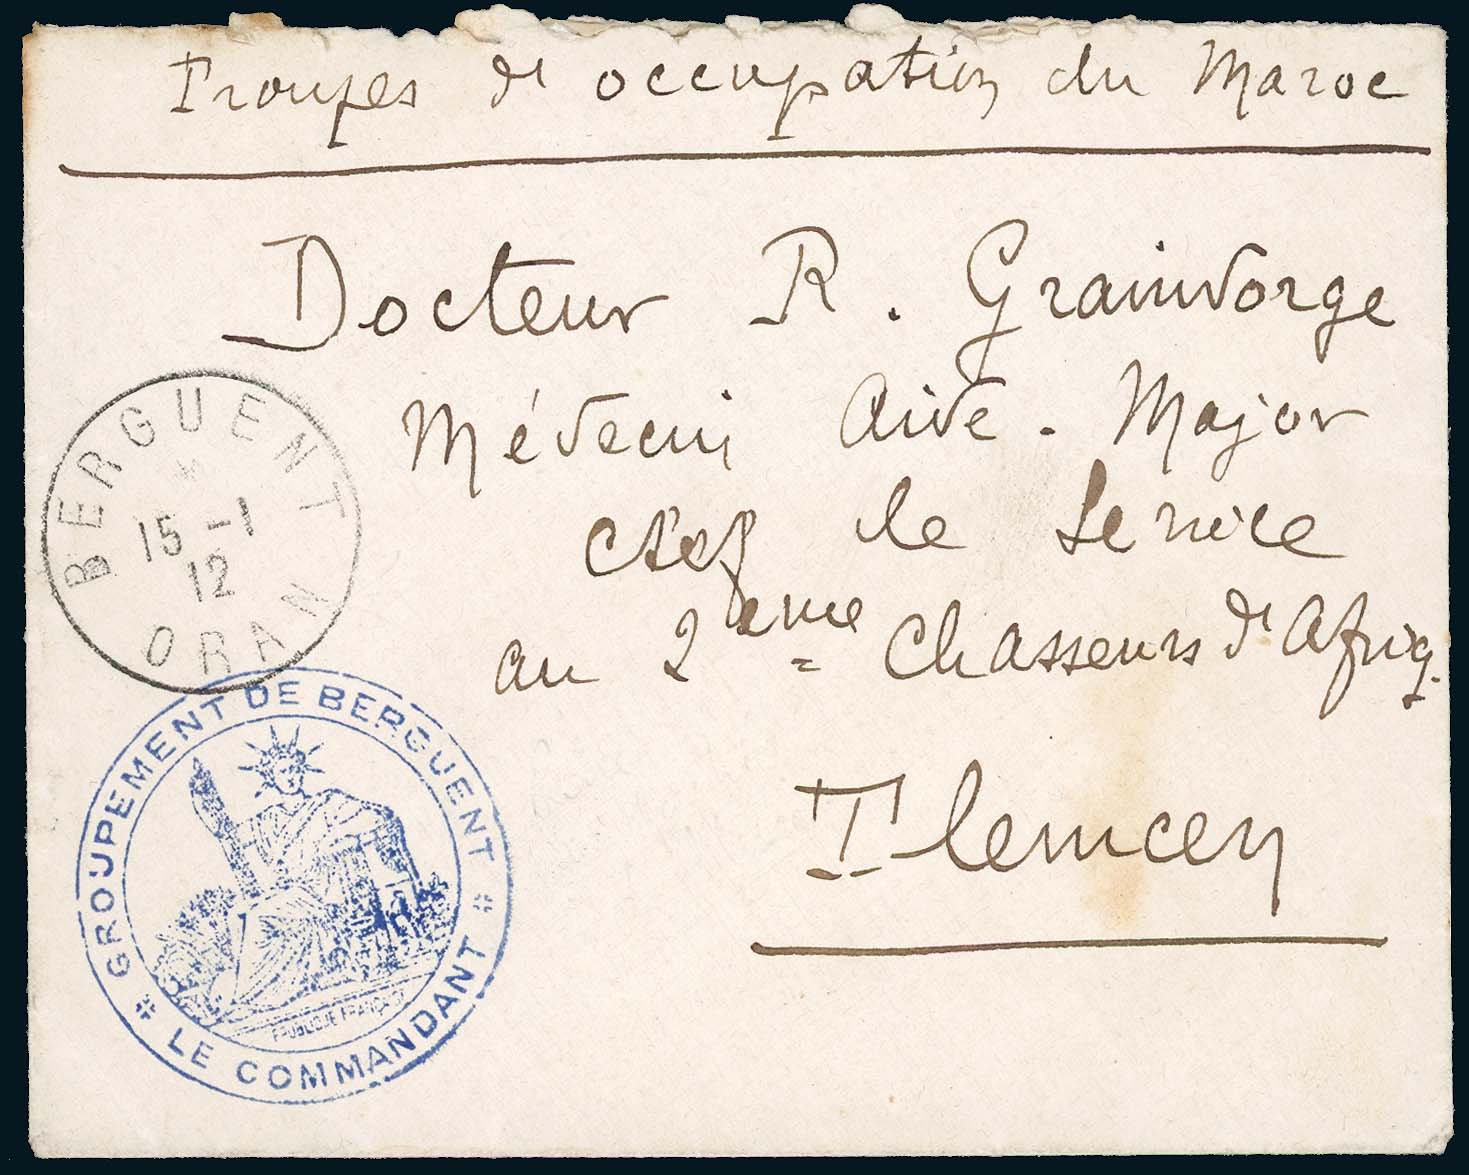 Troupes d' occupation du Maroc
Docteur R. Grainдorge
Médecin Aide-Major
Chef de Service
au 2ème Chasseurs d'Afriq.
Tlemcen
BERGUENT
15 -1
12
ORAN
GROUPEMENT DE BERGUENT
LE COMMANDANT
RÉPUBLIQUE FRANÇAISE